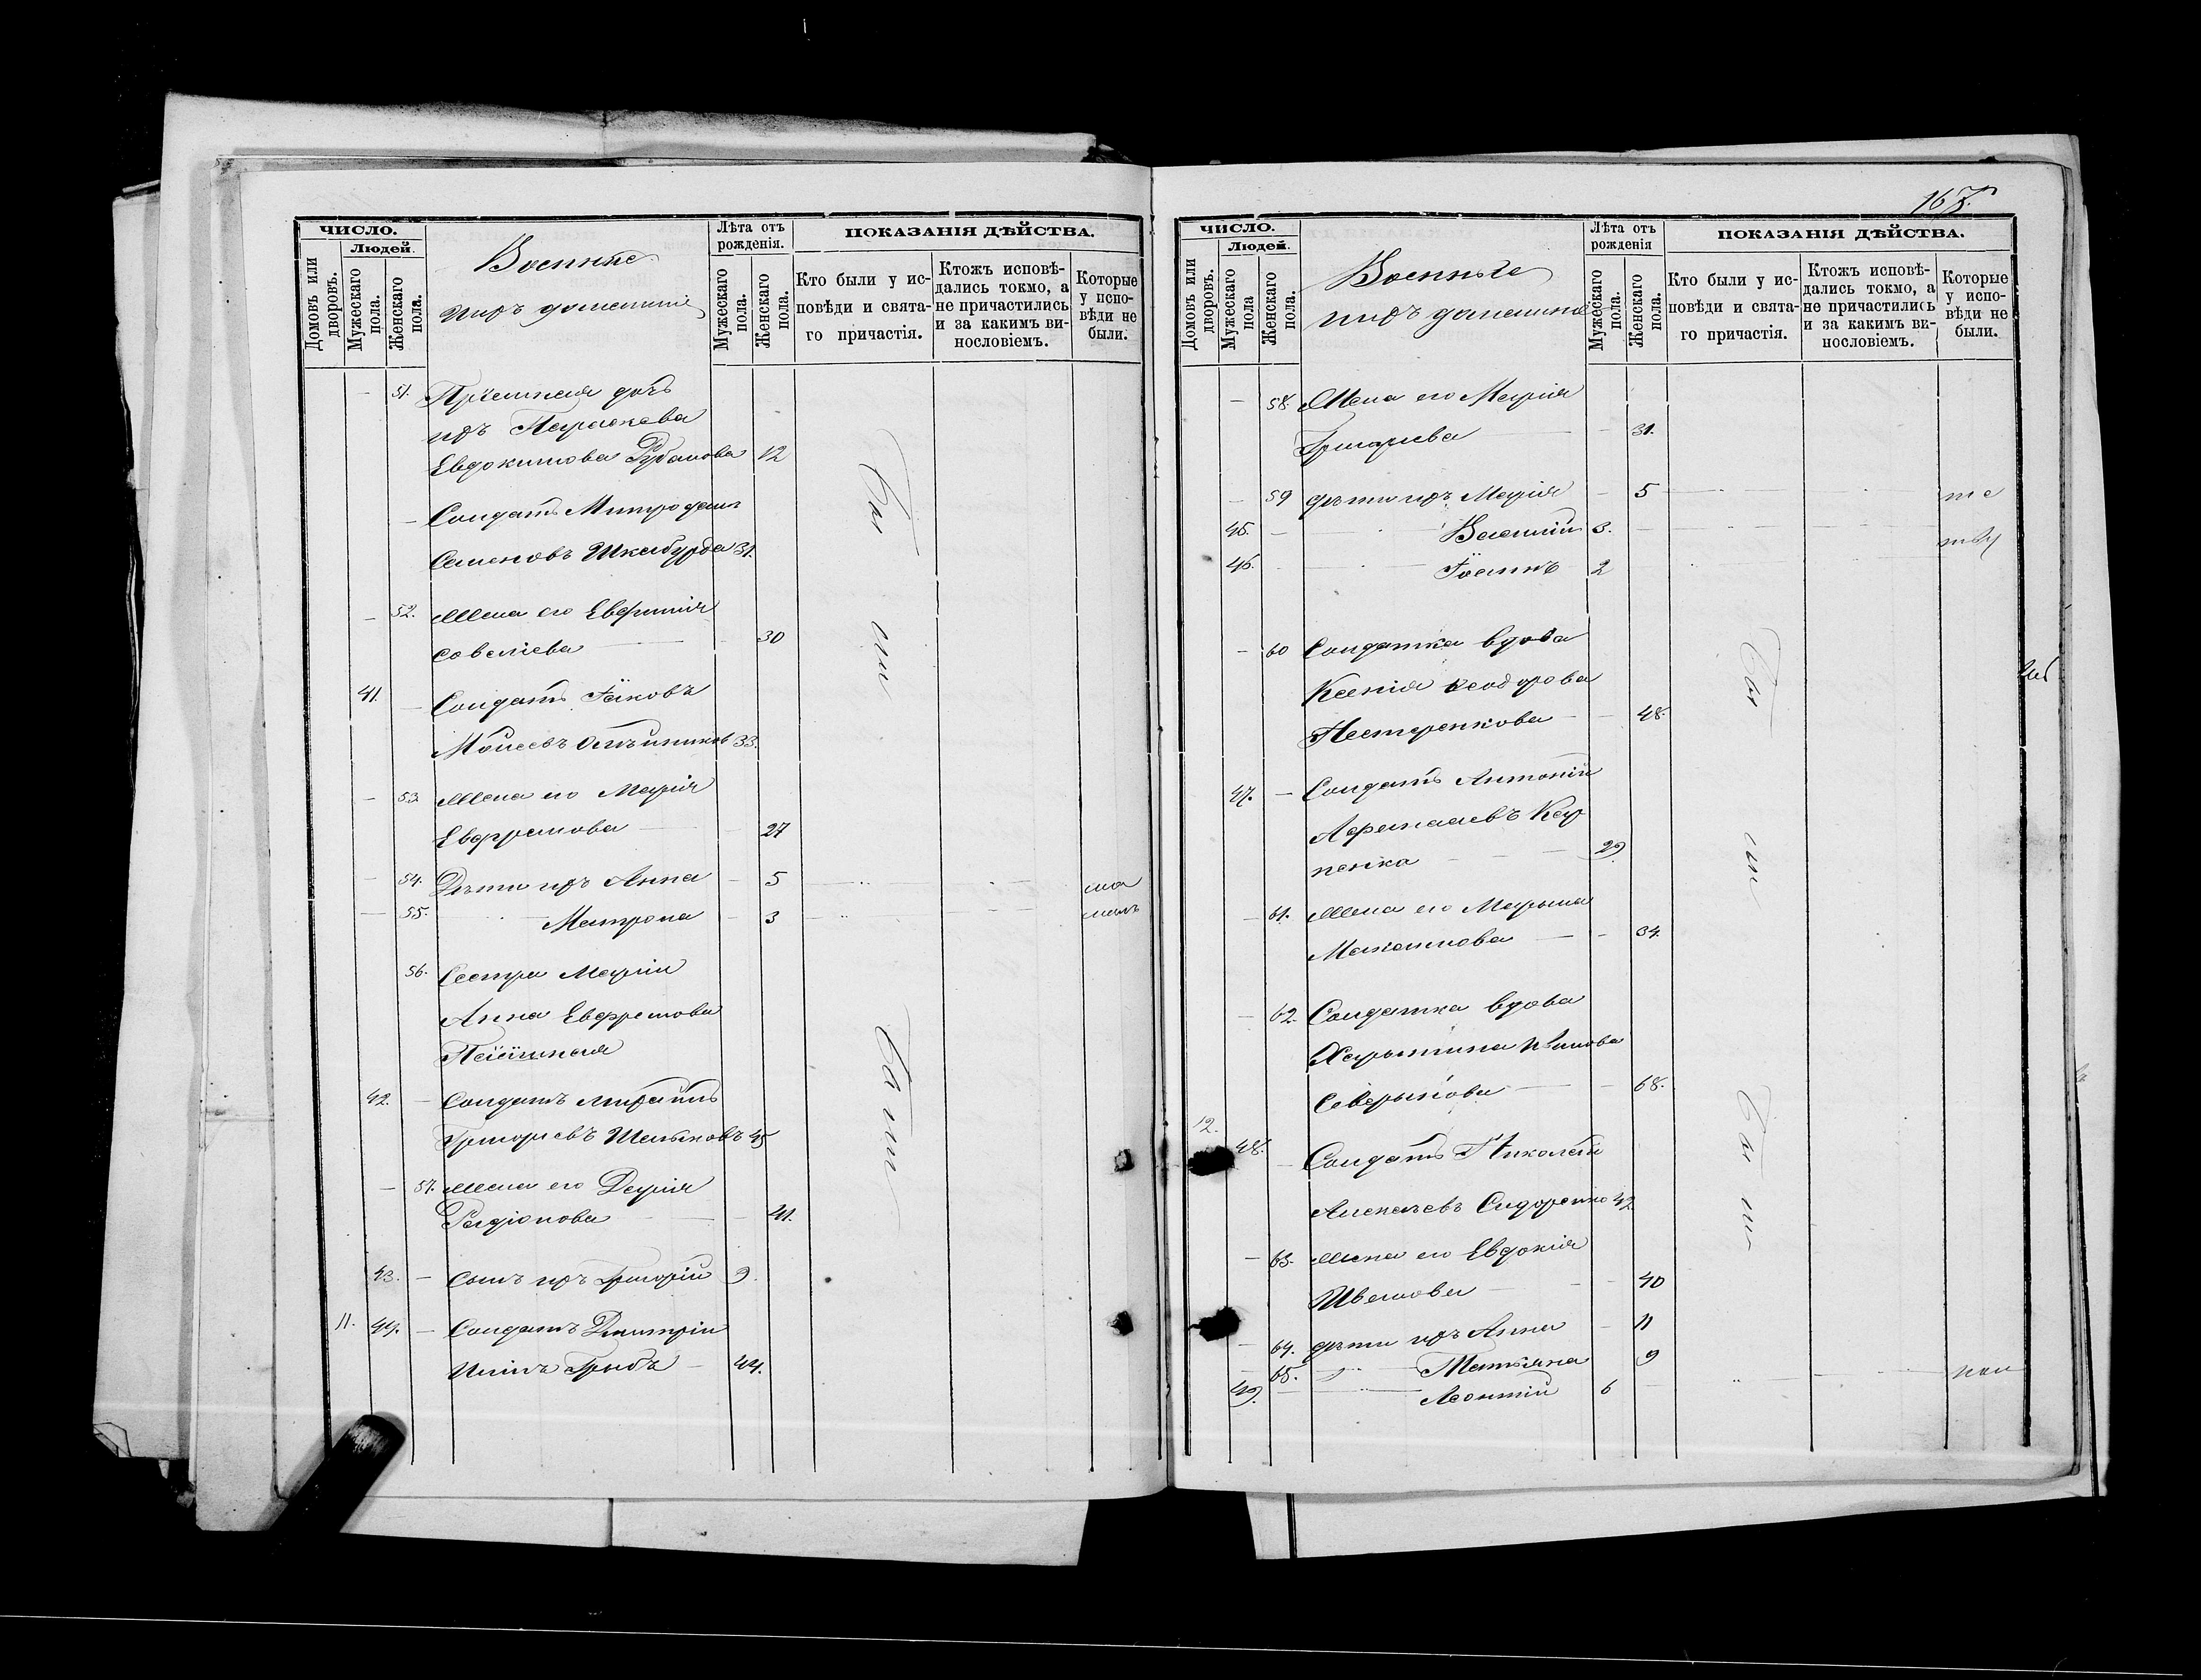 ЧИСЛО.
Людей.
Домовъ или дворовъ.
Мужескаго пола.
Женскаго пола.
Военные
ихъ домашніе
Лѣта отъ рожденія.
Мужескаго пола.
Женскаго пола.
ПОКАЗАНІЯ ДѢЙСТВА.
Кто были у ис-
повѣди и свята-
го причастія.
Ктожъ исповѣ-
дались токмо, а
не причастились
и за какимъ ви-
нословіемъ.
Которые
у испо-
вѣди не
были.
— 51. Пріемная дочь
ихъ Параскева
Евдокимова Рубанова 12
— Солдатъ Митрофанъ
Семеновъ Шкабурда 31.
— 52. Жена его Евфимія
Савеліева — 30
41. — Солдатъ Іаковъ
Моисеевъ 33.
— 53. Жена его Марія
Евфремова — 27
— 54. Дѣти ихъ Анна — 5 ма
— 55. Матрона — 3 малъ
56. Сестра Маріи
Анна Евфремова
42. — Солдатъ
Григорьевъ 45
— 57. Жена его Дарія
Родіонова — 41.
43. — Сынъ ихъ Григорій 9.
11. 44. — Солдатъ Димитрій
Ильинъ Грибъ — 44.
Бы ли
Были
165.
ЧИСЛО.
Людей.
Домовъ или дворовъ.
Мужескаго пола
Женскаго пола.
Военные
ихъ домашніе
Лѣта отъ рожденія
Мужескаго пола.
Женскаго пола.
ПОКАЗАНІЯ ДѢЙСТВА.
Кто были у ис-
повѣди и свята-
го причастія.
Ктожъ исповѣ-
дались токмо, а
не причастились
и за какимъ ви-
нословіемъ.
Которые
у испо-
вѣди не
были.
— 58. Жена его Марія
Григорьева — 31.
— 59 дѣти ихъ Марія — 5
45. — Василій 3.
46. — Іоаннъ 2
— 60 Солдатка вдова
Ксенія Ѳеодорова
Нестеренкова — 48.
47. — Солдатъ Антоній
Афанасьевъ Кар
пенко — 29
— 61. Жена его Марѳина
— 34.
— 62. Солдатка вдова
Харитина Иванова
Северинова — 68.
12.
48. — Солдатъ Николай
Алексѣевъ Сидоренко 42
— 63. Жена его Евдокія
Иванова — 40
— 64. дѣти ихъ Анна — 11
— 65. Татьяна 9
49. — Леонтій 6
Бы ли
Бы ли